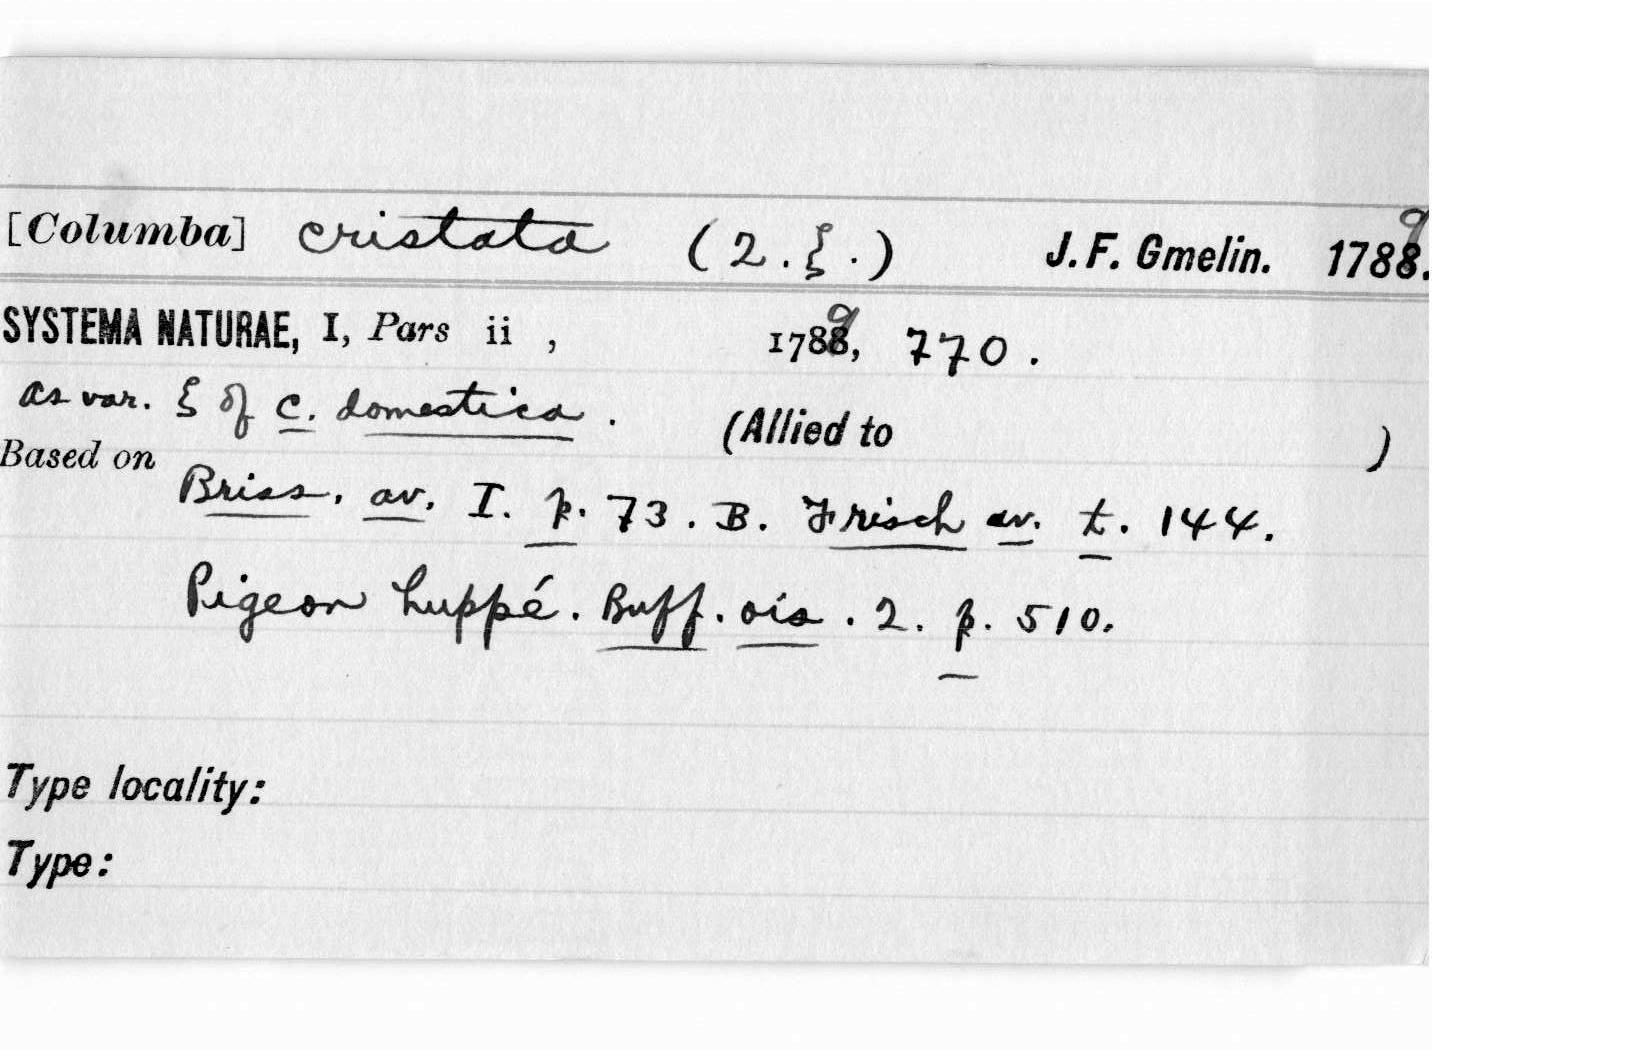 [Columba] cristata (2.ξ.) J. F. Gmelin. 1789.
SYSTEMA NATURAE, I, Pars ii , 1789, 770.
as var. ξ of C. domestica. (Allied to )
Based on
Briss. av. I. p. 73. B. Frisch av. t. 144.
Pigeon huppé. Buff. ois. 2. p. 510.
Type locality:
Type: